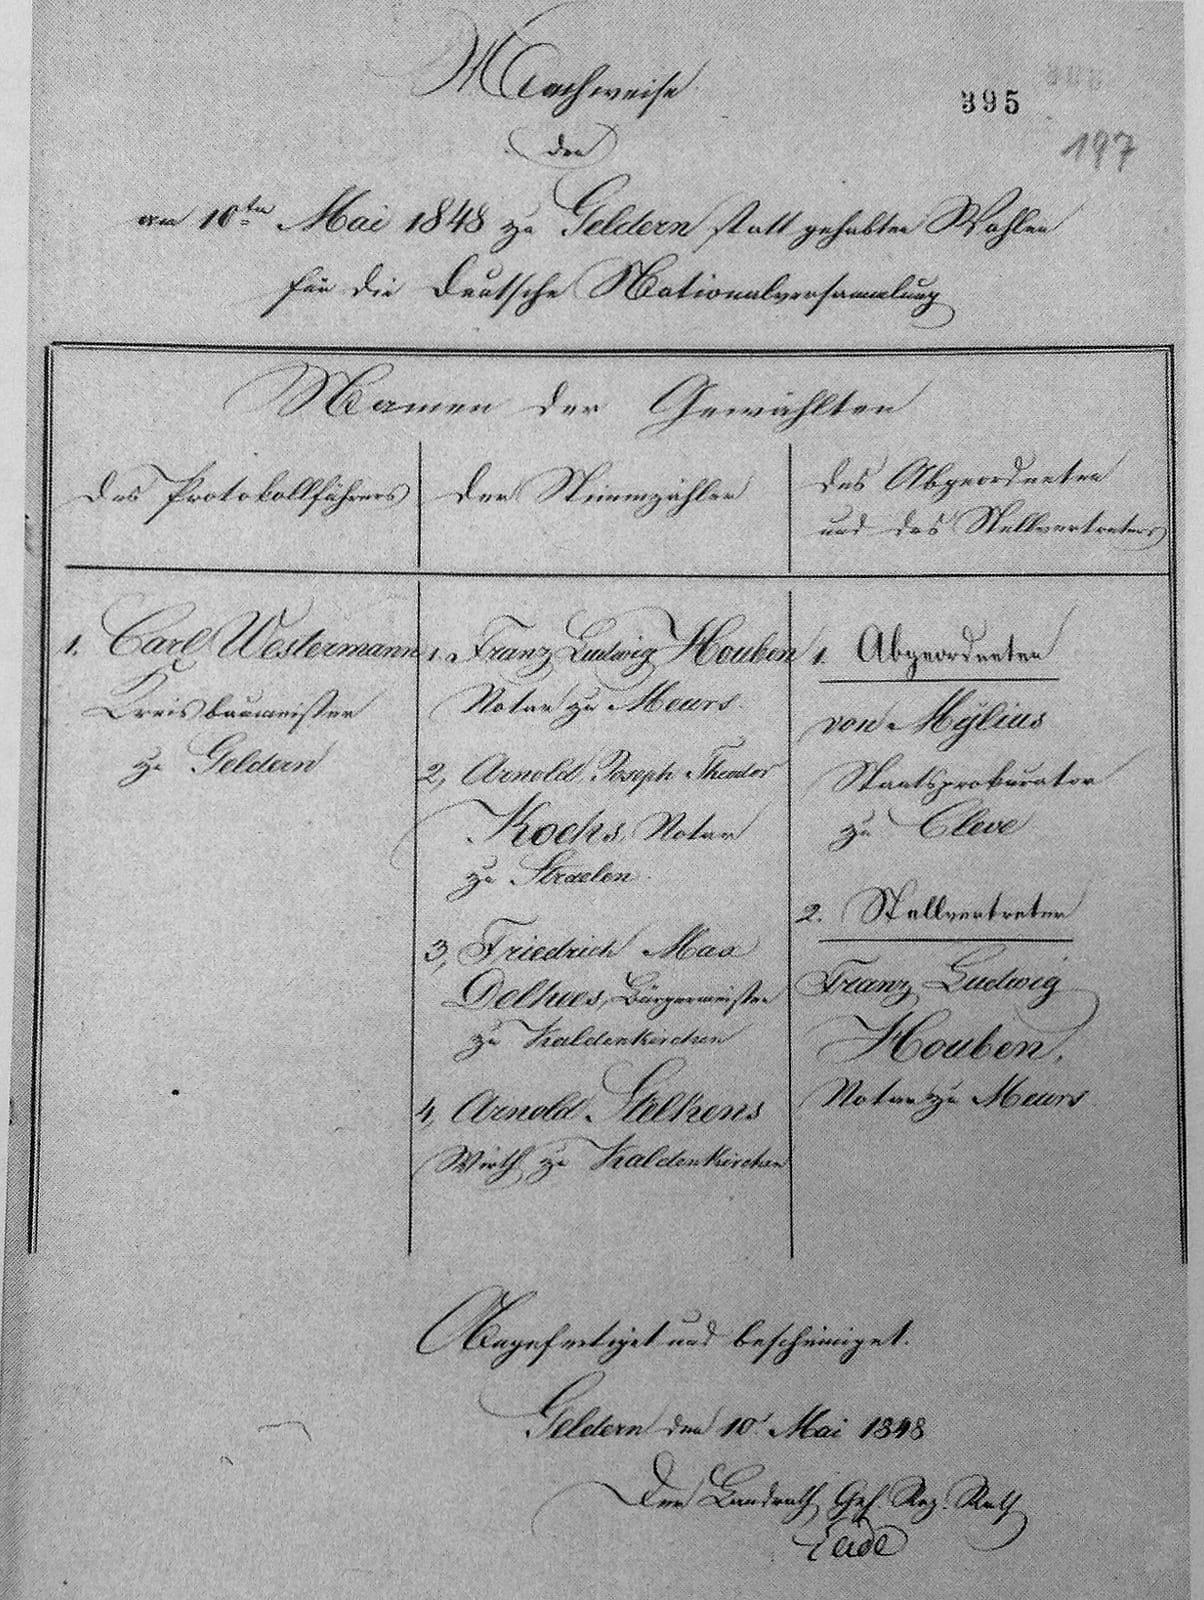 Nachweise
395
197
der
am 10ten Mai 1848 zu Geldern statt gehabten Wahlen
für die deutsche Nationalversammlung
Namen der Gewählten
des Protokollführers
der Stimmzähler
des Abgeordneten
und des Stellvertreters
1. Carl Westermann
Kreisbaumeister
zu Geldern
1. Franz Ludwig Houben
Notar zu Meurs.
2, Arnold Joseph Theodor
Kochs, Notar
zu Straelen.
3, Friedrich Max
Delhees, Bürgermeister
zu Kaldenkirchen
4, Arnold Stelkens
Wirth zu Kaldenkirchen
1. Abgeordneter
von Mÿlius
Staatsprokurator
zu Cleve
2. Stellvertreter
Franz Ludwig
Houben,
Notar zu Meurs
Ausgefertiget und bescheiniget.
Geldern den 10. Mai 1848
Der Landrath, Geh. Reg. Rath